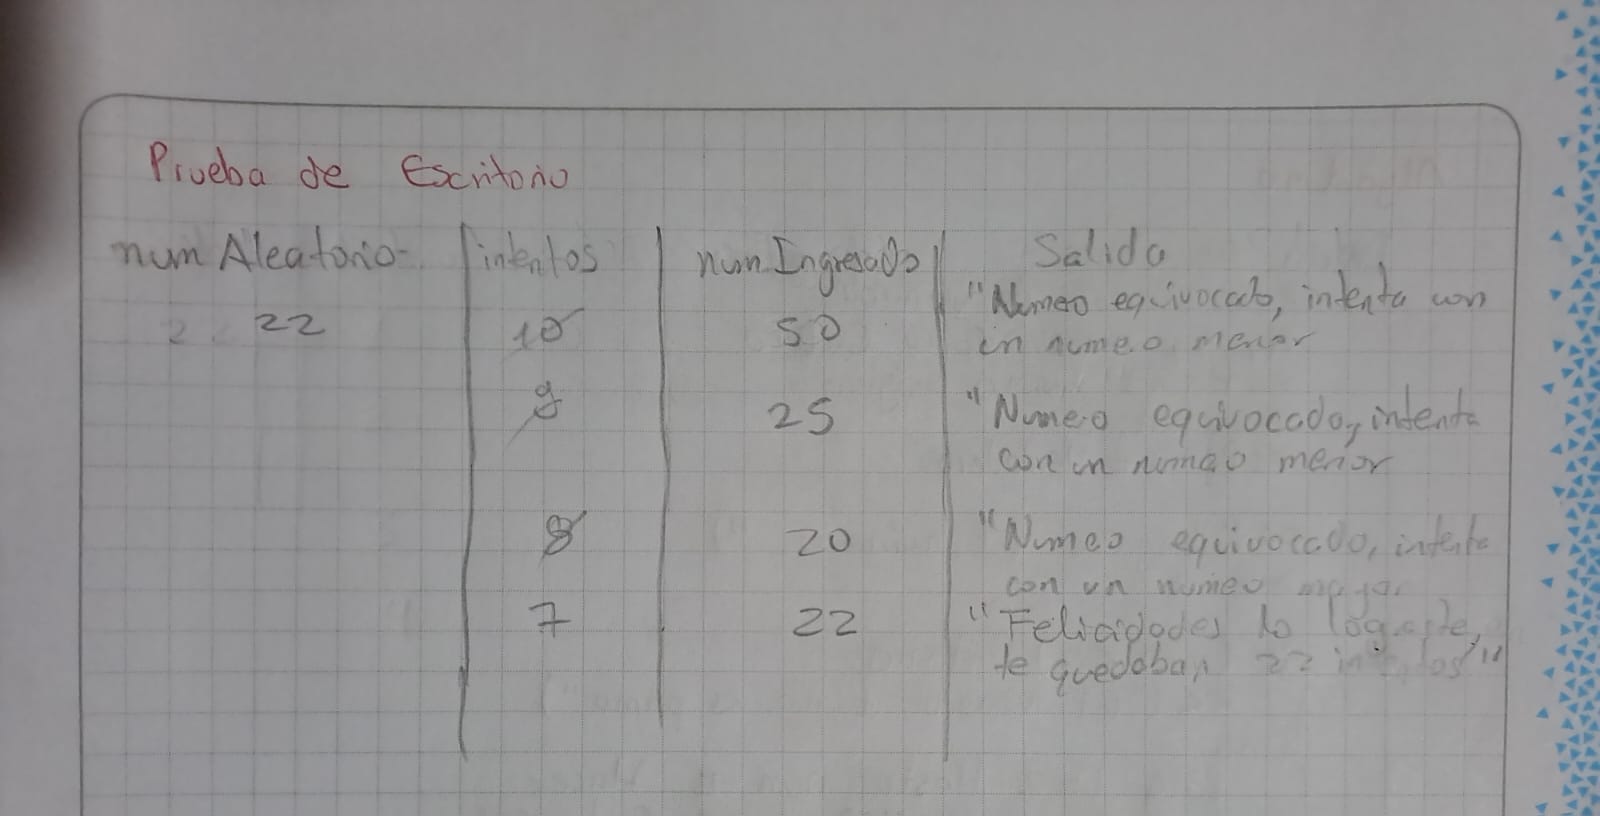 Prueba de Escritorio
num Aleatorio intentos num Ingresado Salida
22 10 50 "Numero equivocado, intenta con
un numero menor
9 25 "Numero equivocado, intenta
con un numero menor
8 20 "Numero equivocado, intenta
con un numero mayor
7 22 "Felicidades lo lograste,
te quedaban 22 intentos"